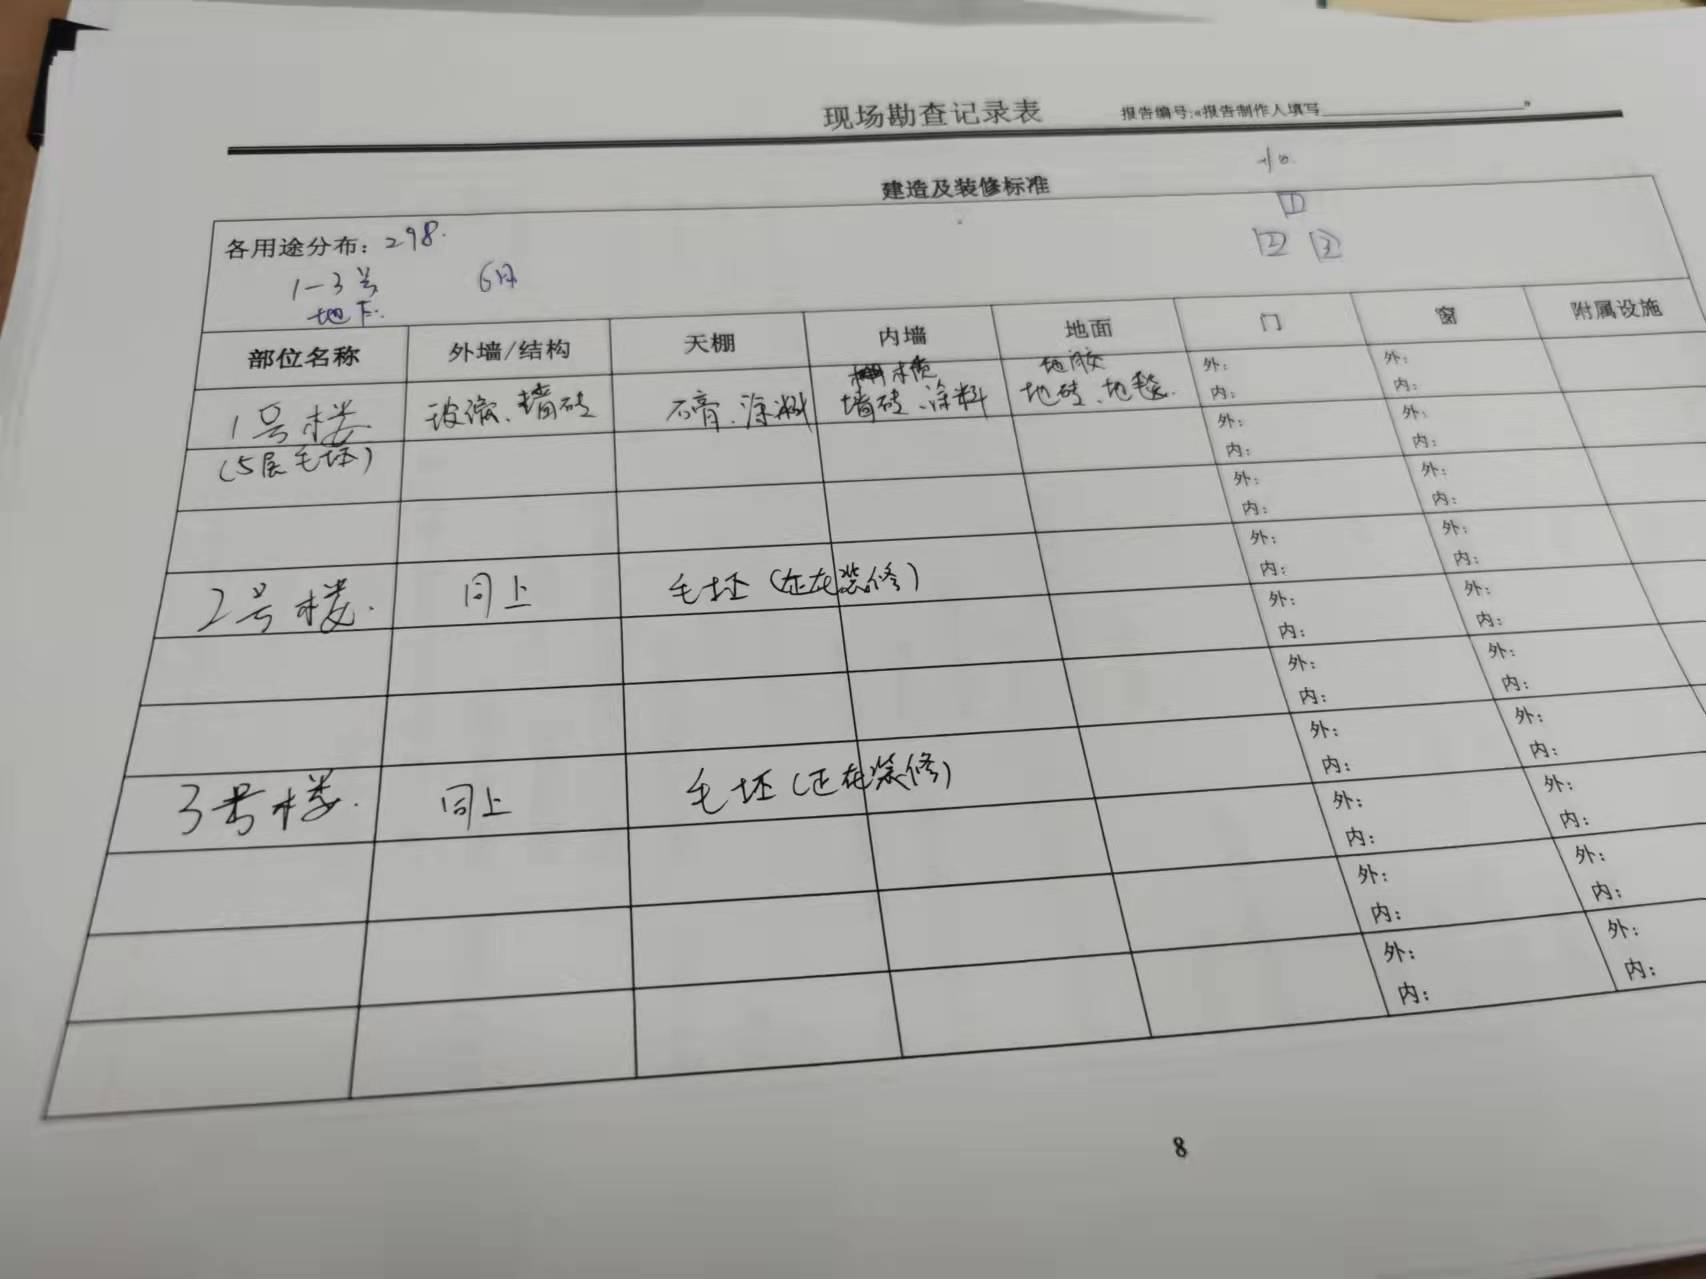 现场勘查记录表 报告编号:«报告制作人填写__________»
建造及装修标准
① 
② ③
各用途分布：298.
1-3号 6月
地下.
部位名称 外墙/结构 天棚 内墙 地面 门 窗 附属设施
木质 地胶
1号楼 玻璃、墙砖 石膏、涂料 墙砖、涂料 地砖、地毯. 外： 外：
内： 内：
(5层毛坯) 外： 外：
内： 内：
外： 外：
内： 内：
2号楼. 同上 毛坯(正在装修) 外： 外：
内： 内：
外： 外：
内： 内：
外： 外：
内： 内：
3号楼. 同上 毛坯(正在装修) 外： 外：
内： 内：
外： 外：
内： 内：
外： 外：
内： 内：
外： 外：
内： 内：
8